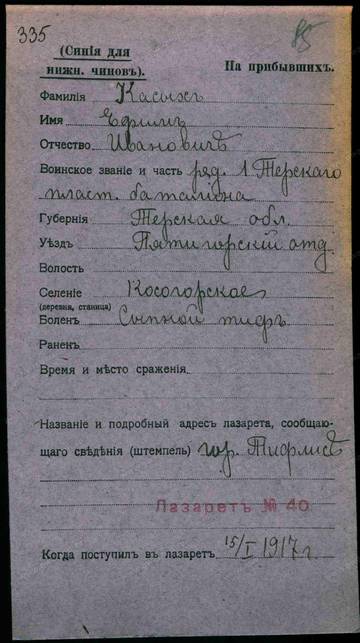 335
85
(Синія для
нижн. чиновъ).
На прибывшихъ.
Фамилія Касьихъ
Имя Ефимъ
Отчество Ивановичъ
Воинское званіе и часть ряд. 1 Терскаго
пласт. баталіона
Губернія Терская обл.
Уѣздъ Пятигорскій отд.
Волость
Селеніе Косогорское
(деревня, станица)
Боленъ Сыпной тифъ
Раненъ
Время и мѣсто сраженія
Названіе и подробный адресъ лазарета, сообщаю-
щаго свѣдѣнія (штемпель) гор. Тифлисъ
Лазаретъ № 40
Когда поступилъ въ лазаретъ 15/I 1917 г.